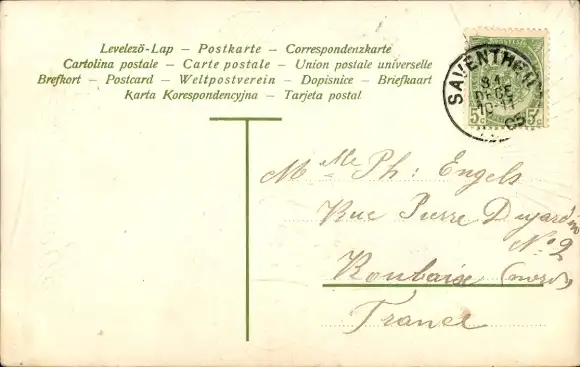 Levelező-Lap – Postkarte – Correspondenzkarte
Cartolina postale – Carte postale – Union postale universelle
Brefkort – Postcard – Weltpostverein – Dopisnice – Briefkaart
Karta Korespondencyjna – Tarjeta postal
SAVENTHEM
31
DECE
10-11
05
5c 5c
Mme Ph: Engels
Rue Pierre
No 2
Roubaix (nord)
France